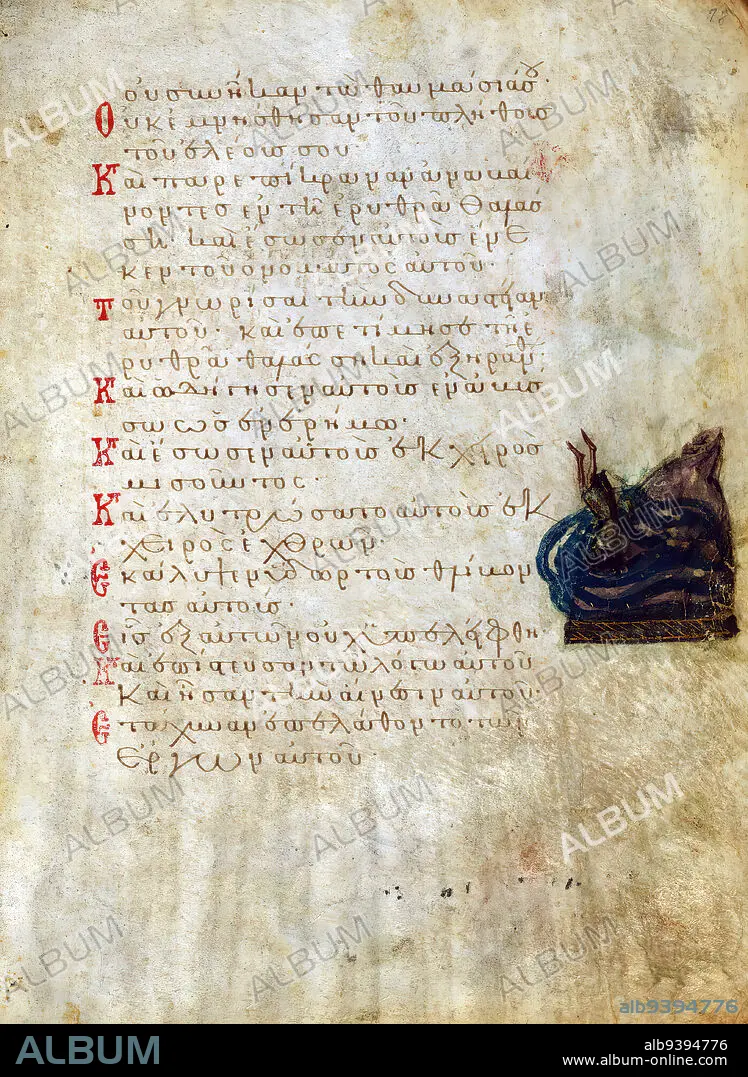 78
οὐ συνῆκαν τὰ θαυμάσιά σου·
Οὐκ ἐμνήσθησαν τοῦ πλήθους
τοῦ ἐλέους σου
Καὶ παρεπίκραναν ἀναβαί
νοντες ἐν τῆ ἐρυθρᾶ θαλάσ
ση· καὶ ἔσωσεν αὐτοὺς ἕνε
κεν τοῦ ὀνόματος αὐτοῦ·
Τοῦ γνωρίσαι τὴν δυναστείαν
αὐτοῦ· καὶ ἐπετίμησε τῆ ἐ
ρυθρᾶ θαλάσση καὶ ἐξηράνθη·
Καὶ ὡδήγησεν αὐτοὺς ἐν ἀβύσ
σω ὡς ἐν ἐρήμω·
Καὶ ἔσωσεν αὐτοὺς ἐκ χειρὸς
μισοῦντος·
Καὶ ἐλυτρώσατο αὐτοὺς ἐκ
χειρὸς ἐχθρῶν·
Ἐκάλυψεν ὕδωρ τοὺς θλίβον
τας αὐτούς·
Εἷς ἐξ αὐτῶν οὐχ ὑπελείφθη
Καὶ ἐπίστευσαν τῶ λόγω αὐτοῦ
Καὶ ἦσαν τὴν αἴνεσιν αὐτοῦ·
Ἐτάχυναν ἐπελάθοντο τῶν
ἔργων αὐτοῦ·
ALBUM
alb9394776
ALBUM
alb9394776
www.album-online.com